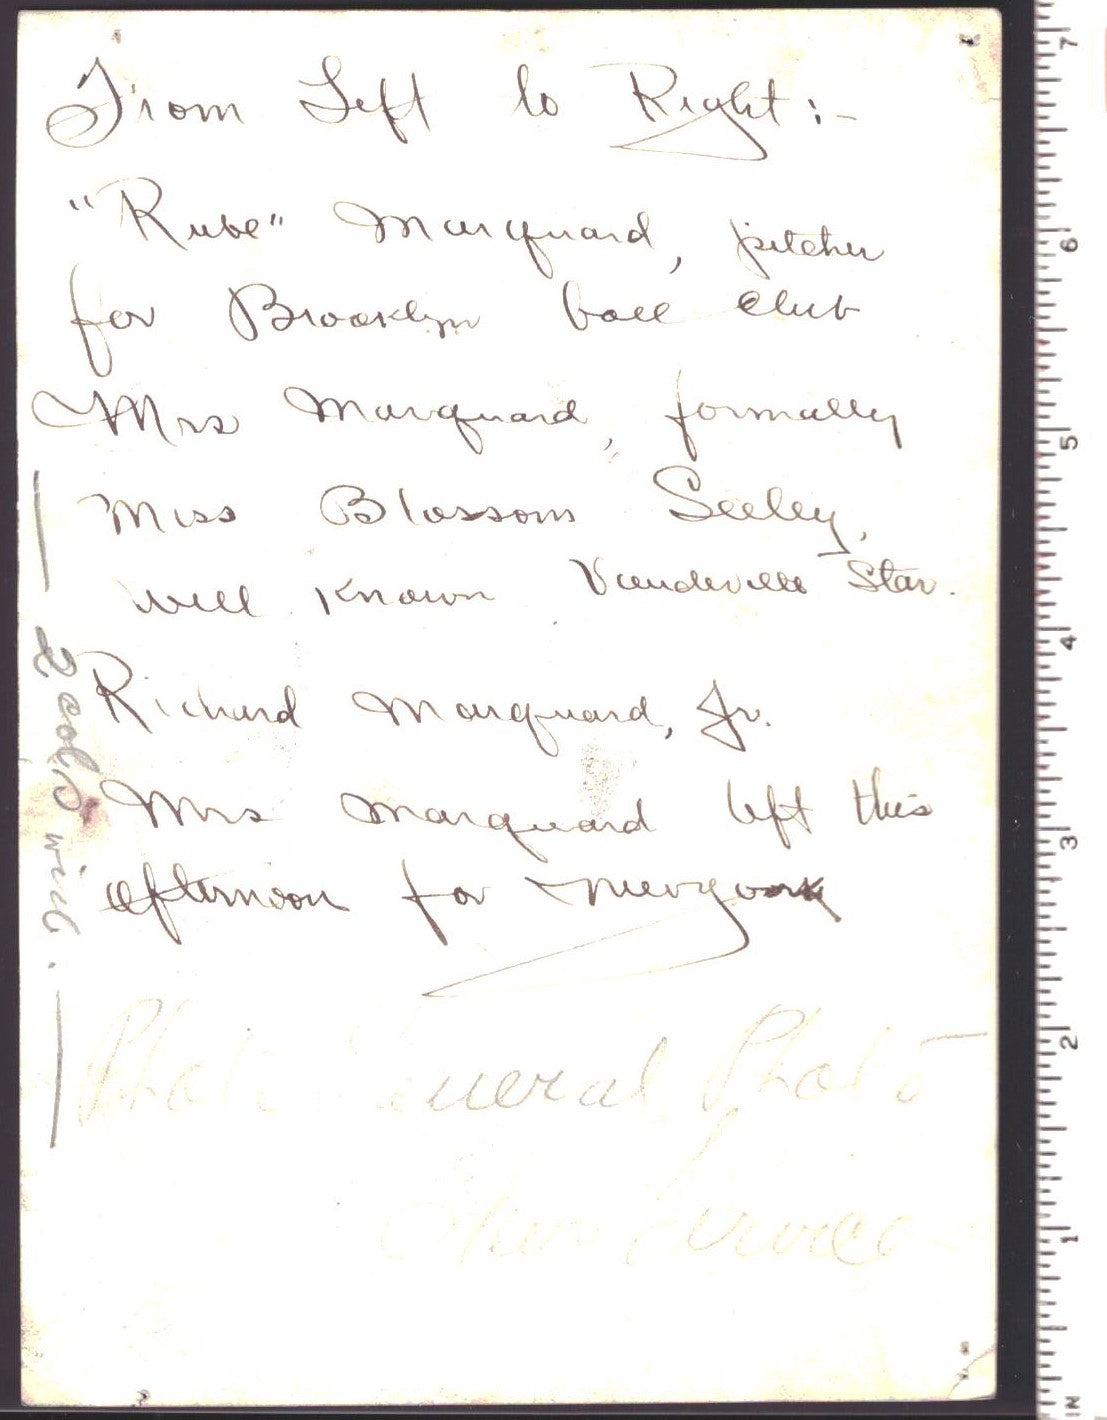 From Left to Right:-
"Rube" Marquard, pitcher
for Brooklyn ball club
Mrs Marquard, formally
Miss Blossom Seeley,
well known Vaudeville Star.
Richard Marquard, Jr.
Mrs Marquard left this
afternoon for Newyork
Photo General Photo
News Service
2 cols wide.
7
6
5
4
3
2
1
IN